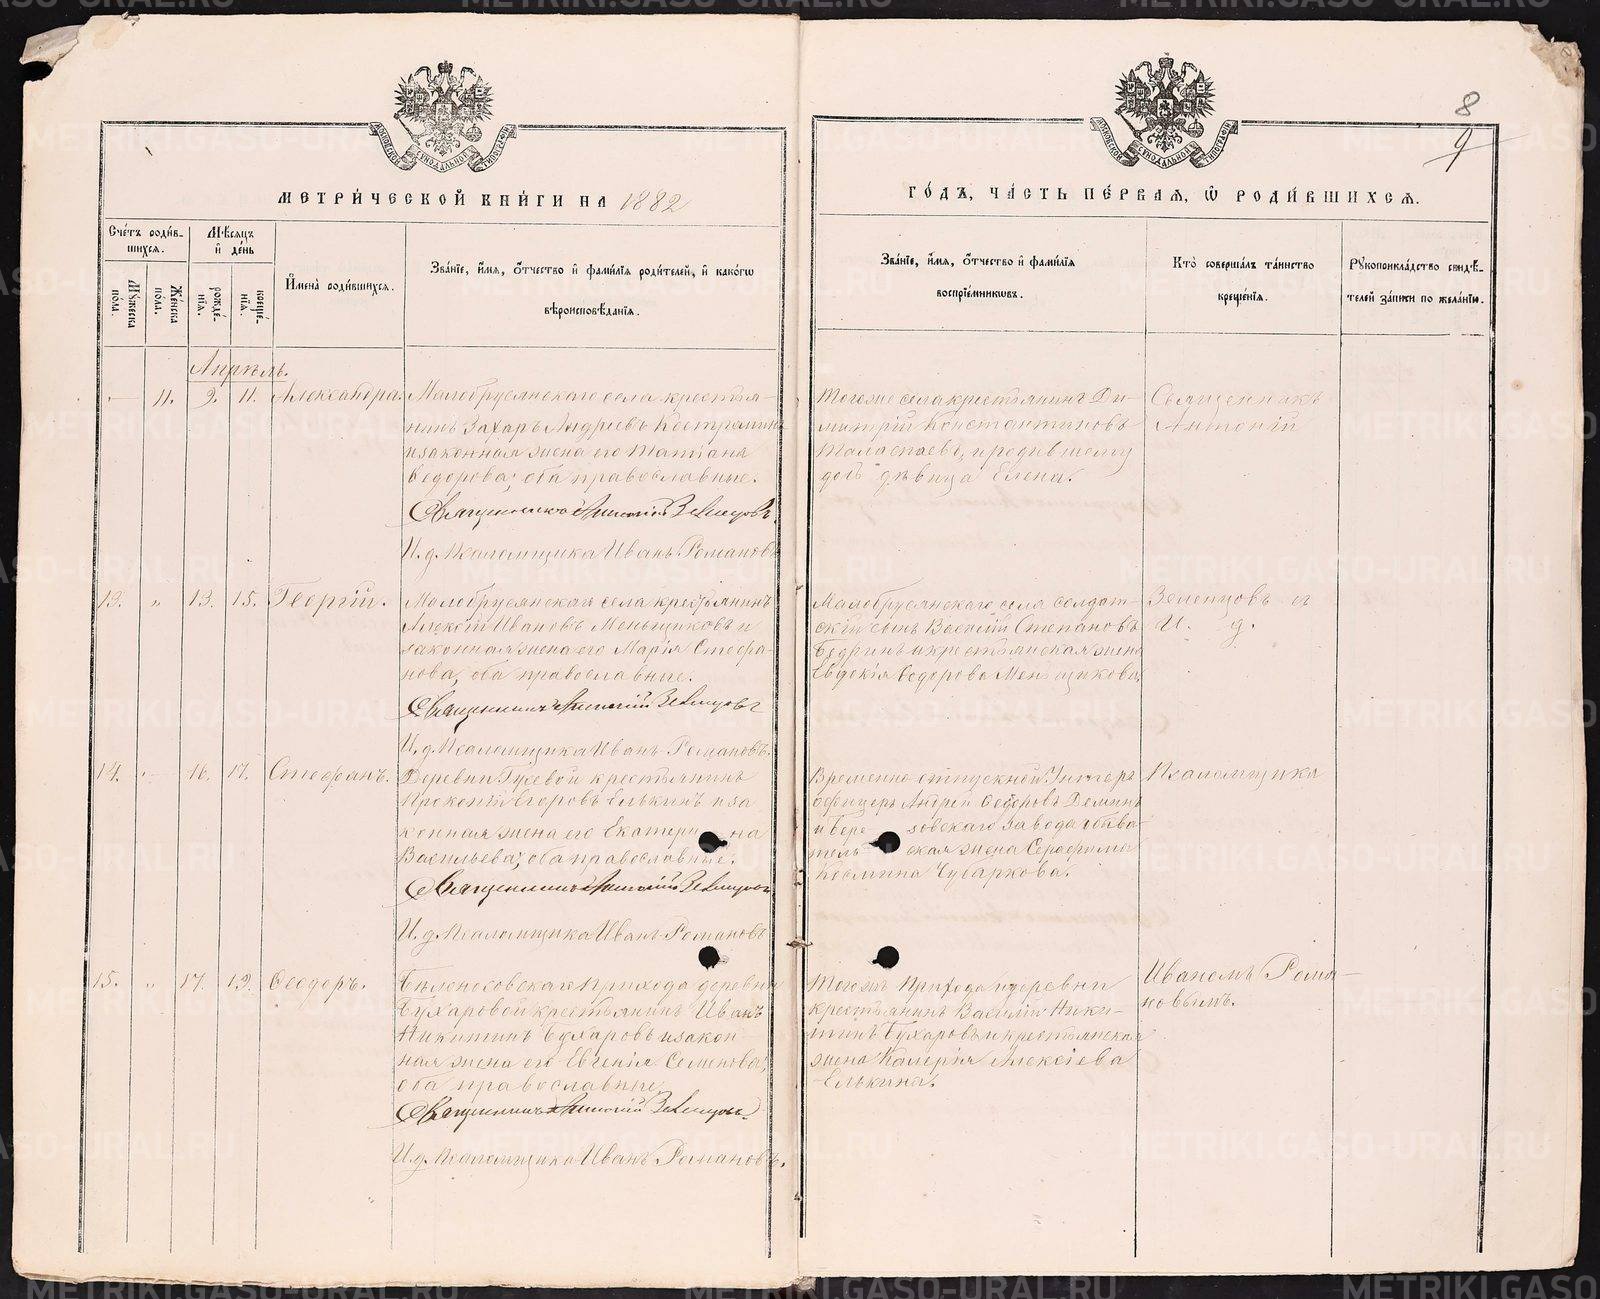 МЕТРИ́ЧЕСКОЙ КНИ́ГИ НА 1882
ГО́ДЪ, ЧА́СТЬ ПЕ́РВАЯ, Ѡ РОДИ́ВШИХСЯ.
8
9
Сче́тъ роди́в-
шихся.
Му́жеска
по́ла.
Же́нска
по́ла.
Мѣ́сяцъ
и де́нь
рожде́-
нія.
креще́-
нія.
Имена̀ роди́вшихся.
Зва́ніе, и́мя, о́тчество и фами́лія роди́телей, и како́гѡ
вѣроисповѣ́данія.
Зва́ніе, и́мя, о́тчество и фами́лія
воспріе́мникѡвъ.
Кто̀ соверша́лъ та́инство
креще́нія.
Рукоприкла́дство свидѣ́-
телей за́писи по жела́нію.
Апрѣль.
— 11. 9. 11. Александра.
Малобрусянскаго села крестья-
нинъ Захаръ Андреевъ Костромин
и законная жена его Татіана
Ѳедорова; оба православные.
Священникъ Антоній Зеленцовъ.
И. д. Псаломщика Иванъ Романовъ
Тогоже села крестьянинъ Ди-
митрій Константиновъ
Таласпаевъ, и родившему
дочь дѣвица Елена.
Священникъ
Антоній
13. " 13. 15. Георгій.
Малобрусянскаго села крестьянинъ
Алексій Ивановъ Меньщиковъ и
законная жена его Марія Стефа-
нова, оба православные.
Священникъ Антоній Зеленцовъ
И. д. Псаломщика Иванъ Романовъ.
Малобрусянскаго села солдат-
скій сынъ Василій Степановъ
Бедринъ и крестьянская жена
Евдокія Ѳедорова Меньщикова
Зеленцовъ съ
И. д.
14. — 16. 17. Стефанъ.
Деревни Гусевой крестьянинъ
Прокопій Егоровъ Елькинъ и за
конная жена его Екатерина
Васильева; оба православные.
Священникъ Антоній Зеленцовъ
И. д. Псаломщика Иванъ Романовъ
Временно отпускной Унтеръ
офицеръ Андрей Ѳедоровъ Деминъ
и Березовскаго завода обыва-
тельская жена Серафима
Космина Чусаркова.
Псаломщика
15. " 17. 19. Ѳеодоръ.
Бѣлоносовскаго Прихода деревни
Бухаровой крестьянинъ Иванъ
Никитинъ Бухаровъ и закон
ная жена его Евгенія Семенова;
оба православные
Священникъ Антоній Зеленцовъ.
И. д. Псаломщика Иванъ Романовъ.
Тогожъ Прихода и деревни
крестьянинъ Василій Ники-
тинъ Бухаровъ и крестьянская
жена Калерія Алексіева
Елькина.
Иваномъ Рома-
новымъ.
METRIKI.GASO-URAL.RU